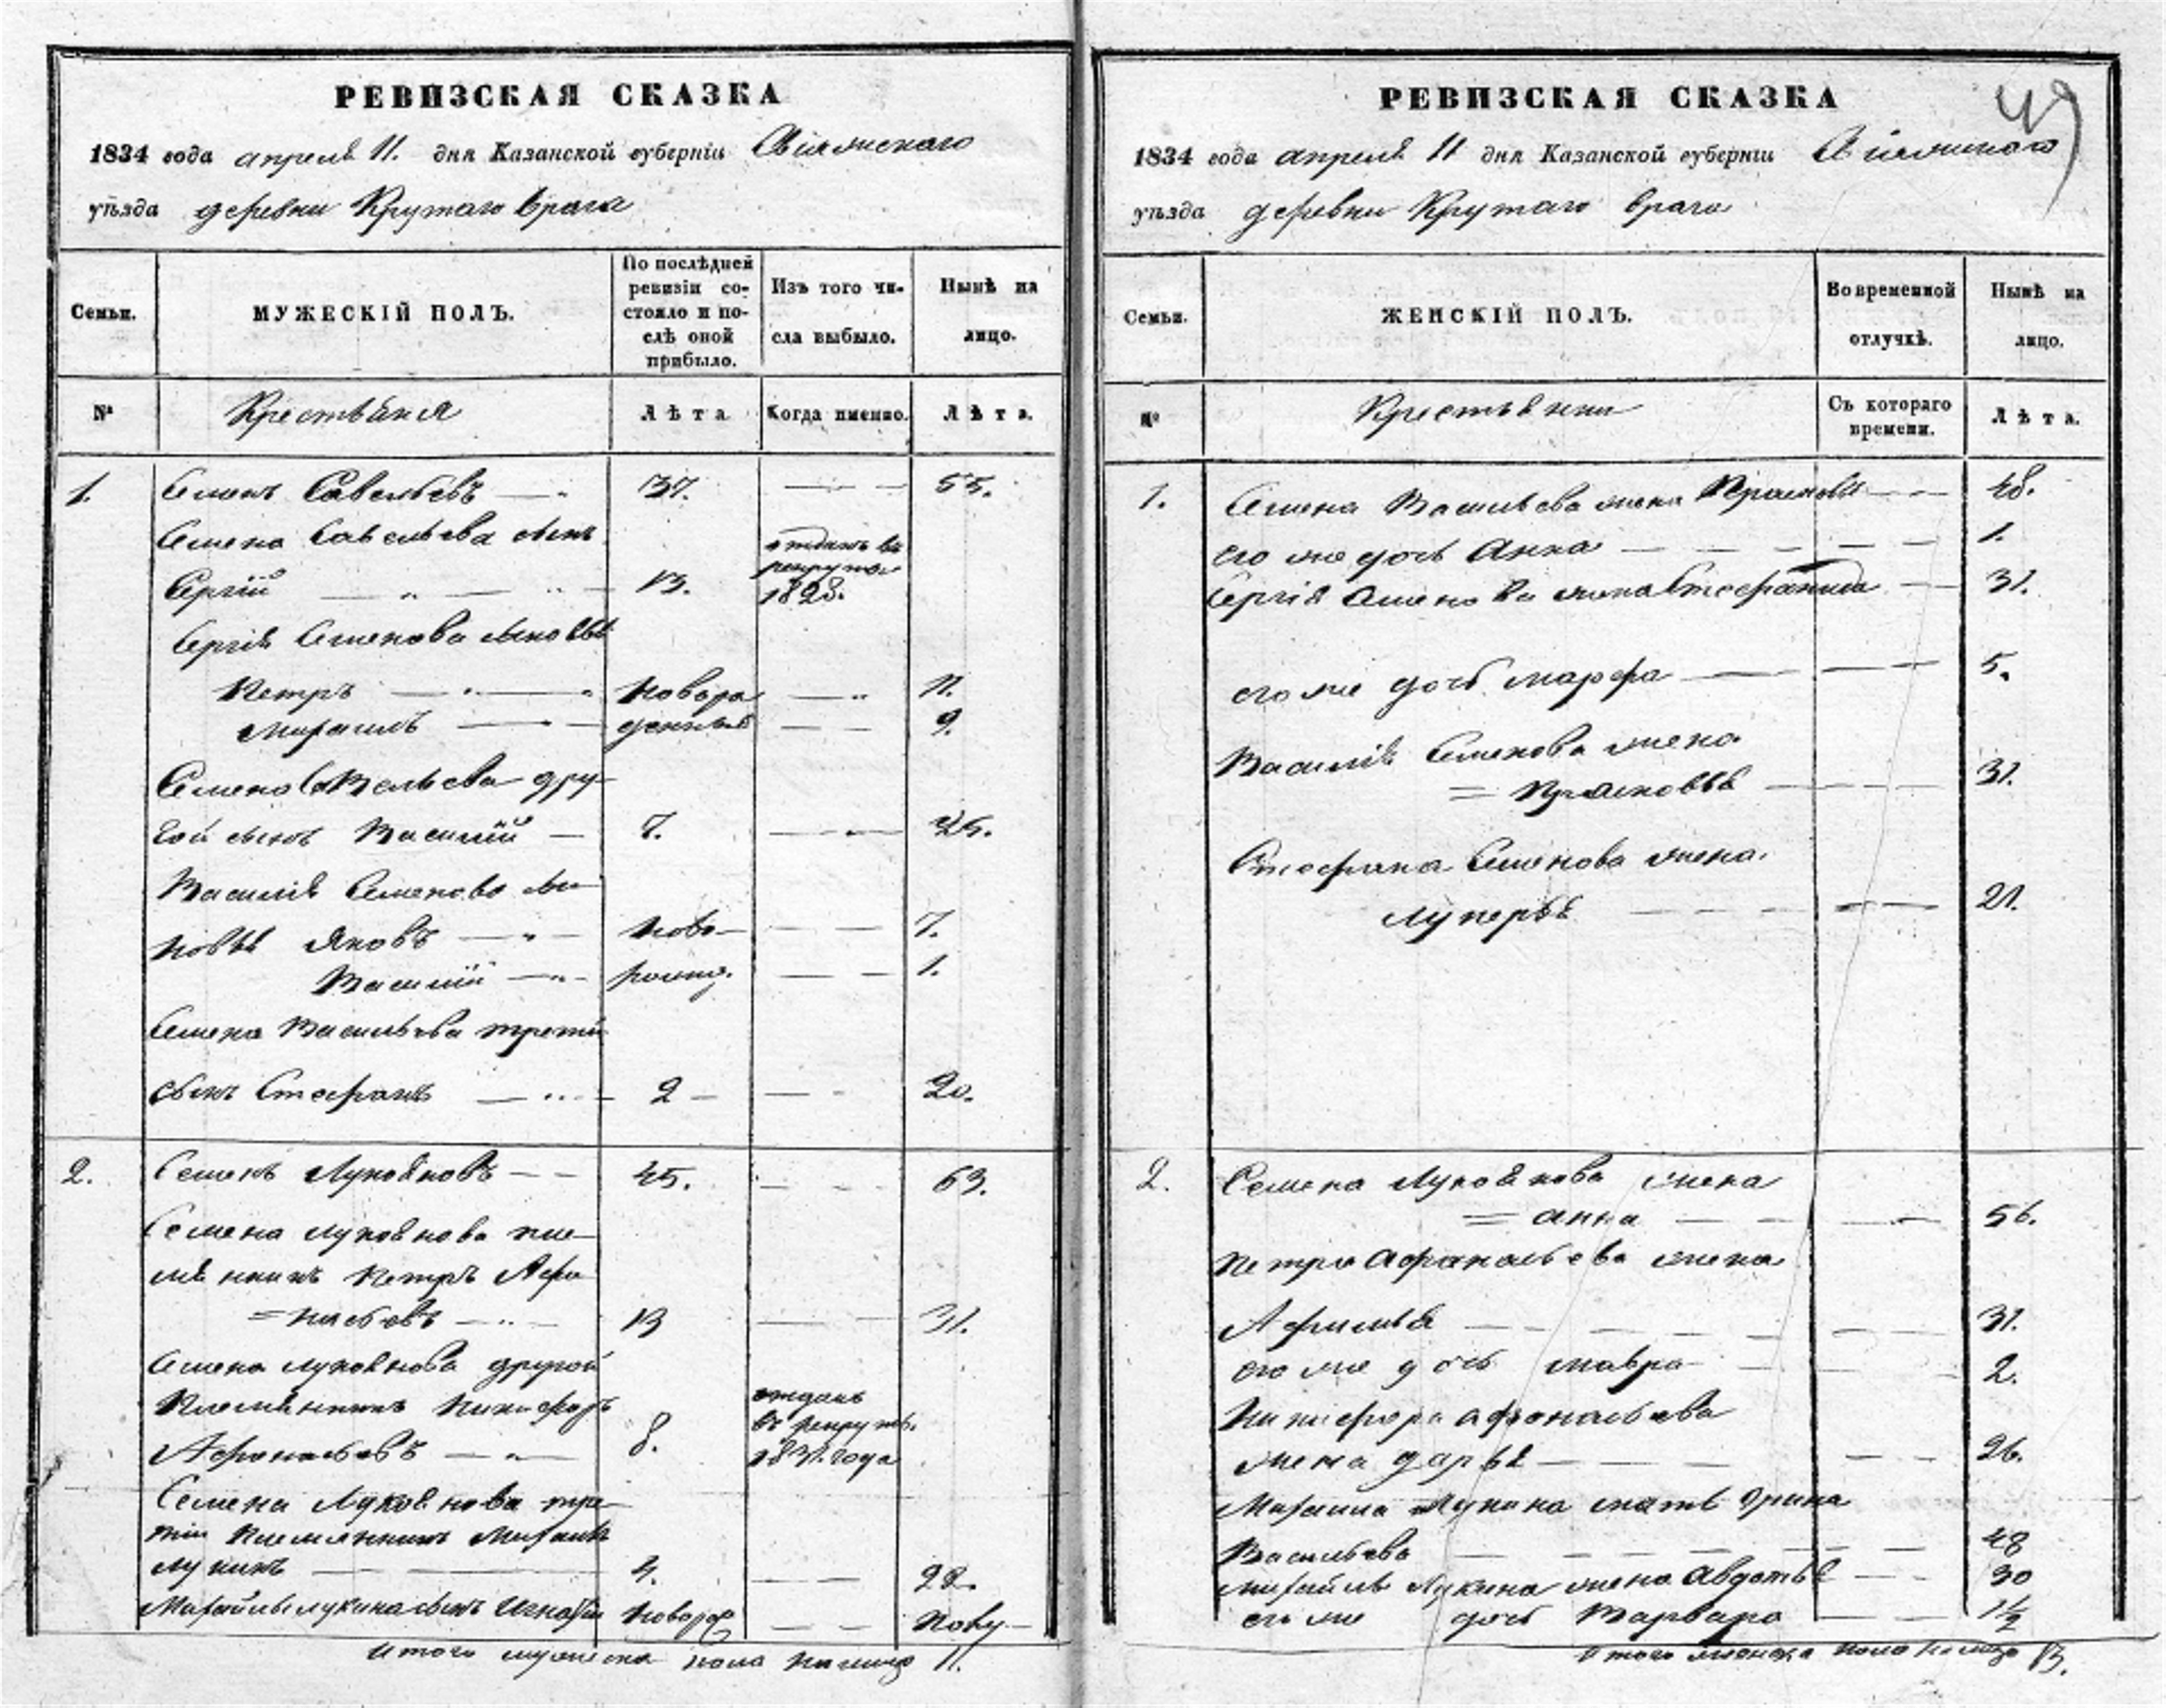 РЕВИЗСКАЯ СКАЗКА
1834 года апреля 11. дня Казанской губерніи Свіяжскаго
уѣзда деревни Крутаго врага
Семьи.
МУЖЕСКІЙ ПОЛЪ.
По послѣдней
ревизіи со-
стояло и по-
слѣ оной
прибыло.
Изъ того чи-
сла выбыло.
Нынѣ на
лицо.
№
Крестьяня
Лѣта
Когда именно.
Лѣта.
1. Семенъ Савельевъ 37. 55.
Семена Савельева сынъ
Сергій 13. отданъ въ рекруты 1828.
Сергія Семенова сыновья
Петръ новоро 11.
Михаилъ жденныя 9.
Семена Савельева дру-
гой сынъ Василій 7. 25.
Василія Семенова сы-
новья Яковъ ново- 7.
Василій рожд. 1.
Семена Васильева третій
сынъ Стефанъ 2 20.
2. Семенъ Лукояновъ 45. 63.
Семена Лукоянова пле-
мянникъ Петръ Афа-
=насьевъ 13 31.
Семена Лукоянова другой
племянникъ Никифоръ
Афонасьевъ 8. отданъ въ рекруты. 1831. года
Семена Лукоянова тре-
тій племянникъ Михаила
Лукинъ 4. 22.
Михайлы Лукина сынъ Игнатій новорож
Итого мужеска пола налицо 11.
РЕВИЗСКАЯ СКАЗКА
49
1834 года апреля 11 дня Казанской губерніи Свіяжскаго
уѣзда деревни Крутаго врага
Семьи.
ЖЕНСКІЙ ПОЛЪ.
Во временной
отлучкѣ.
Нынѣ на
лицо.
№
Крестьянки
Съ котораго
времени.
Лѣта.
1. Семена Васильева жена Прасковья 48.
его же дочь Анна 1.
Сергія Семенова жена Стефанида 31.
его же дочь Марфа 5.
Василія Семенова жена
= Прасковья 31.
Стефана Семенова жена.
Лукерья 21.
2. Семена Лукоянова жена
= Анна 56.
Петра Афанасьева жена
Афимья 31.
его же дочь Мавра 2.
Никифора Афонасьева
жена Дарья 26.
Михаила Лукина мать Ирина
Васильева 48
Михайлы Лукина жена Авдотья 30
его же дочь Варвара 1½
Итого женска пола налицо 13.